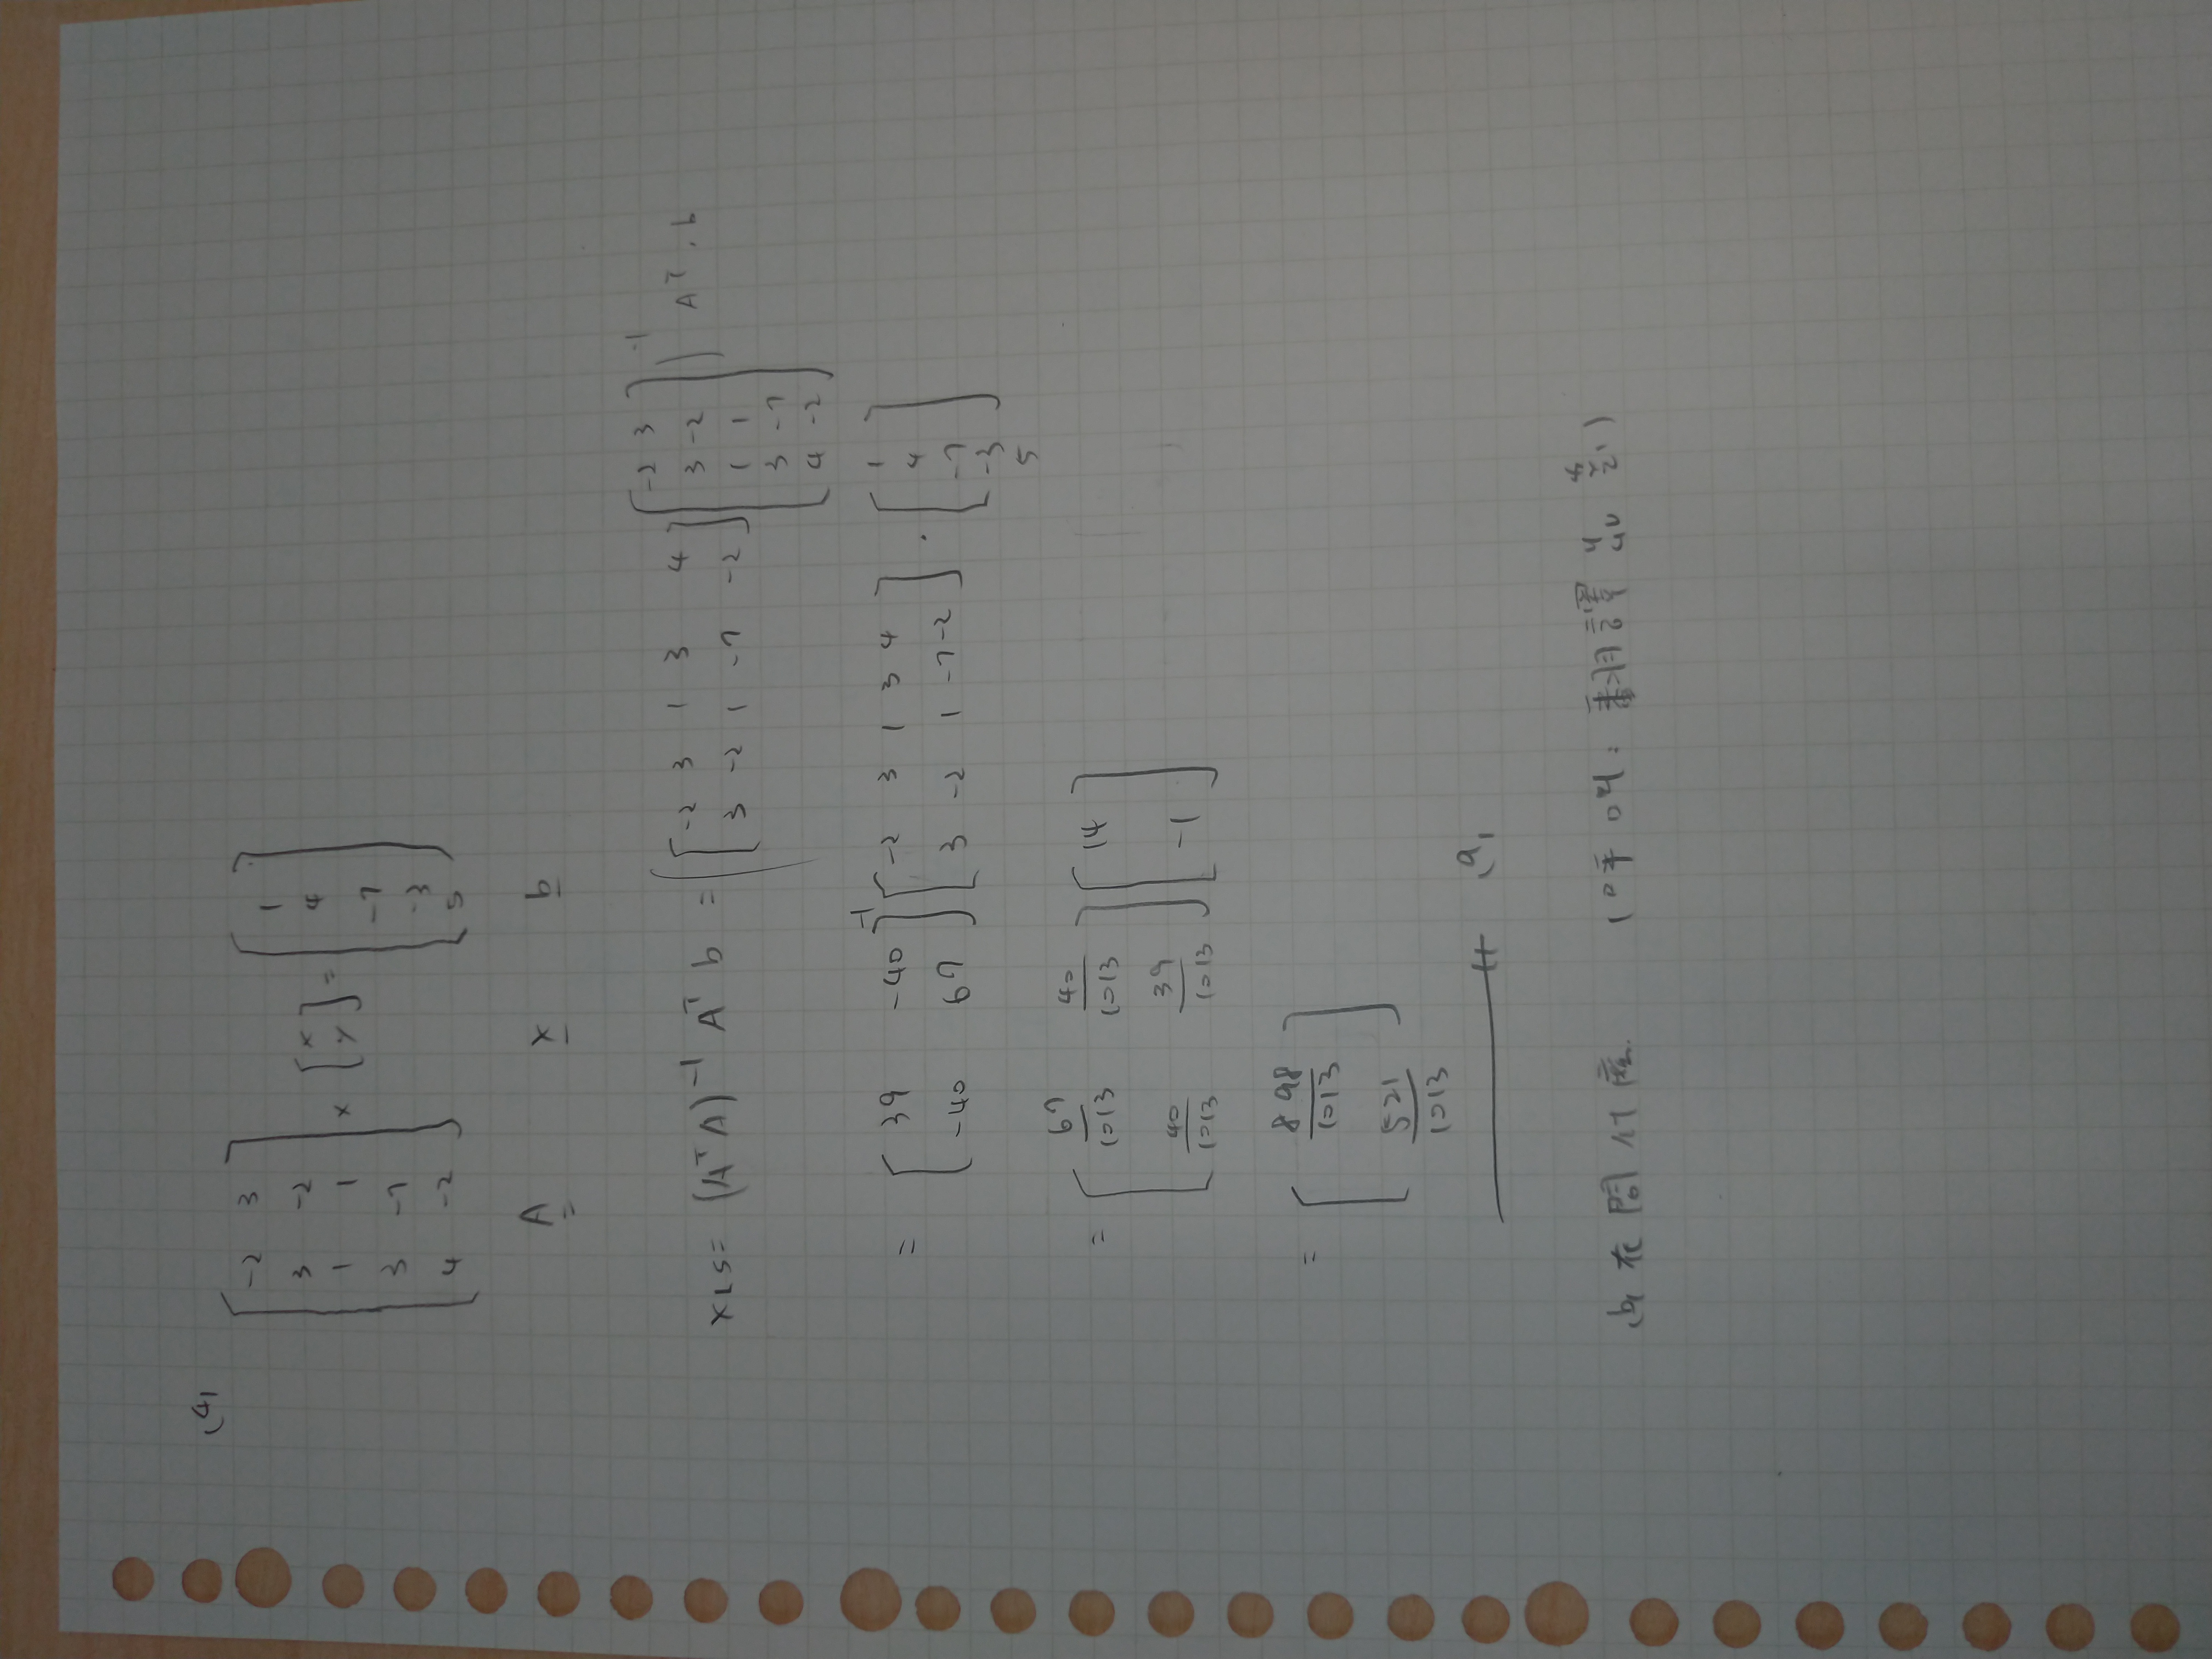 (4)
[-2 3; 3 -2; 1 1; 3 -7; 4 -2] × [x; y] = [1; 4; -7; -3; 5]
A x b
xLS = (Aᵀ A)⁻¹ Aᵀ b = ([-2 3 1 3 4; 3 -2 1 -7 -2] [-2 3; 3 -2; 1 1; 3 -7; 4 -2])⁻¹ Aᵀ · b
= [39 -40; -40 67]⁻¹ [-2 3 1 3 4; 3 -2 1 -7 -2] · [1; 4; -7; -3; 5]
= [67/1013 40/1013; 40/1013 39/1013] [14; -1]
= [898/1013; 521/1013]
(a)
(b) 在問什麼